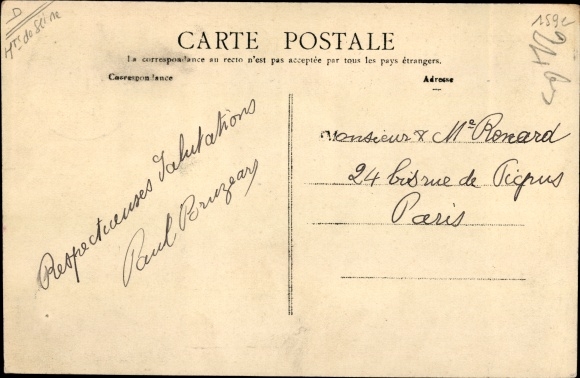 D
Hts de Seine
CARTE POSTALE
La correspondance au recto n'est pas acceptée par tous les pays étrangers.
Correspondance
Adresse
Respectueuses Salutations
Paul Bruzeau
Monsieur & Me Renard
24 bis rue de Picpus
Paris